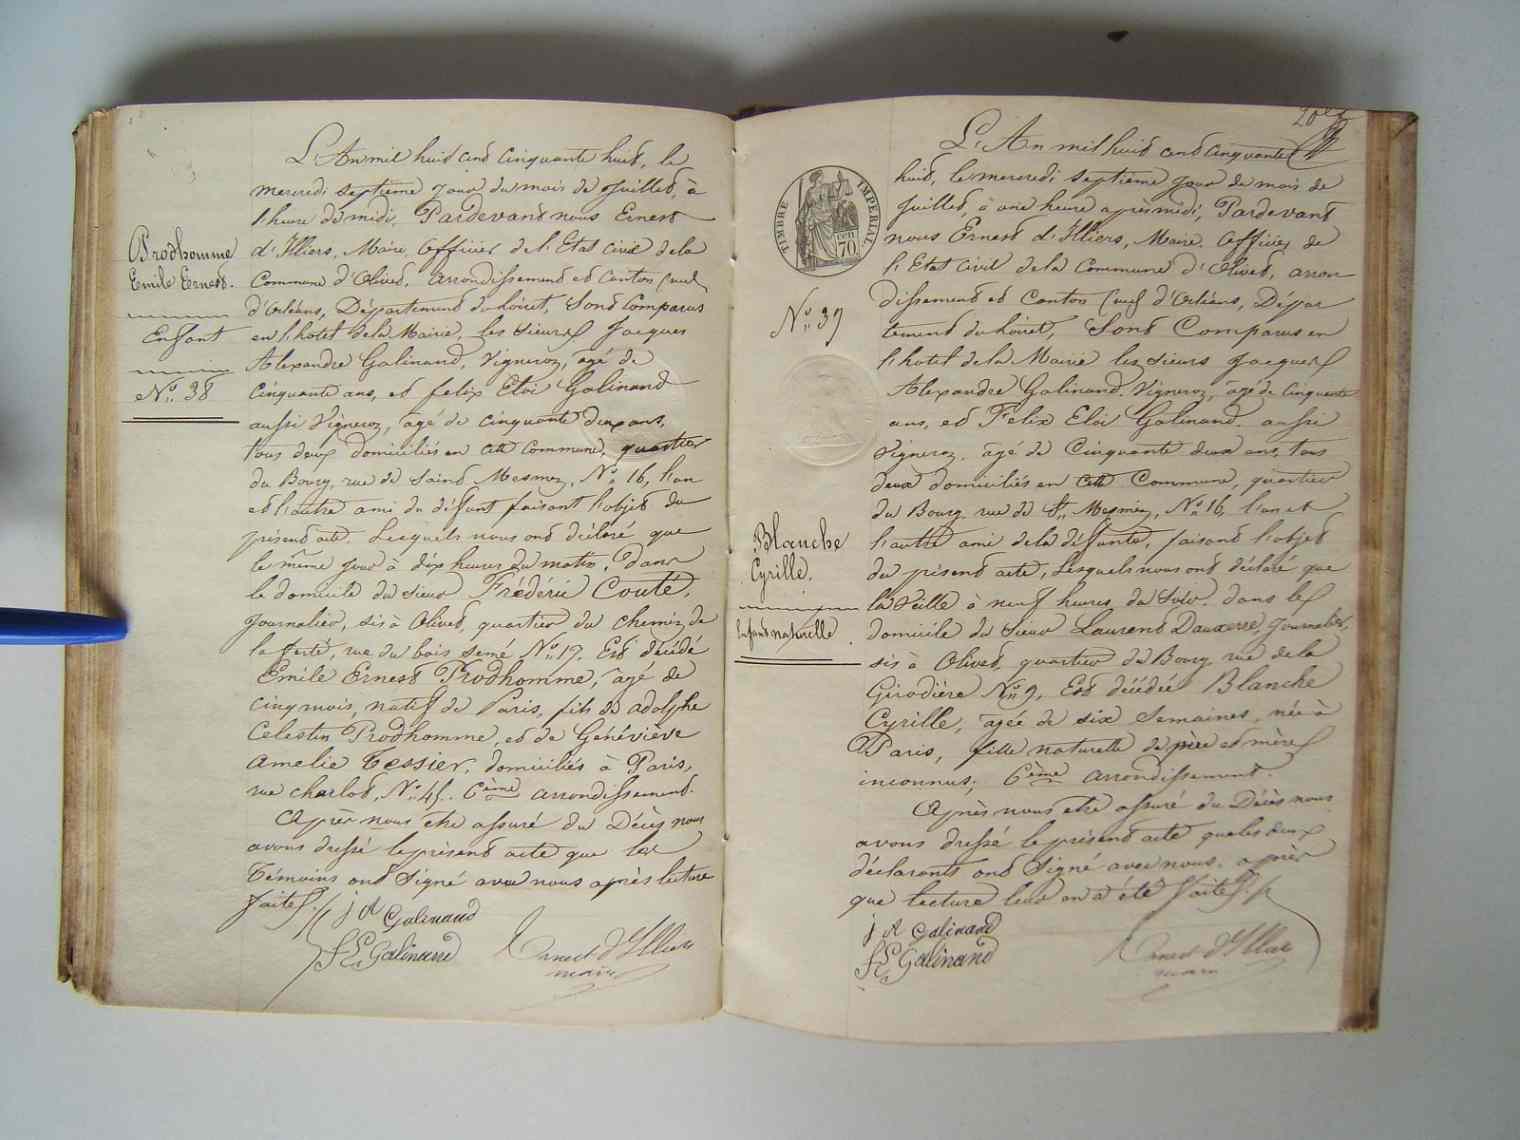 Prodhomme
Emile Ernest.
Enfant
No. 38
L'An mil huit cent cinquante huit, le
mercredi septieme jour du mois de Juillet, à
l'heure de midi, Pardevant nous Ernest
d'Illiers, Maire, officier de l'Etat Civil de la
Commune d'Olivet, arrondissement et Canton Sud
d'Orléans, Département du Loiret, Sont Comparus
en l'hotel de la Mairie, les Sieurs Jacques
Alexandre Galinand, Vigneron, âgé de
Cinquante ans, et felix Eloi Galinand
aussi Vigneron, âgé de cinquante deux ans,
tous deux domiciliés en cette Commune, quartier
du Bourg, rue de Saint Mesmin, No. 16, l'un
et l'autre ami du défunt faisant l'objet du
présent acte. Lesquels nous ont déclaré que
le même jour à dix heures du matin, dans
le domicile du sieur Frédéric Couté,
journalier, sis à Olivet, quartier du chemin de
la ferté, rue du bois semé No. 17. Est décédé
Emile Ernest Prodhomme, âgé de
cinq mois, natif de Paris, fils de adolphe
Celestin Prodhomme, et de Généviève
Amelie Tessier, domiciliés à Paris,
rue charlot, No. 45. 6ème arrondissement.
Après nous etre assuré du Décès nous
avons dressé le présent acte que les
Témoins ont Signé avec nous après lecture
faite.
J A Galinand
F E Galinand
Ernest d'Illiers
maire
TIMBRE IMPERIAL
CEN
70
No. 39
Blanche
Cyrille.
Enfant naturelle
L'An mil huit cent cinquante
huit, le mercredi septieme jour du mois de
Juillet, à une heure après midi, Pardevant
nous Ernest d'Illiers, Maire, officier de
l'Etat Civil de la Commune d'Olivet, arron
dissement et Canton Sud d'Orléans, Dépar
tement du Loiret, Sont Comparus en
l'hotel de la Mairie les Sieurs Jacques
Alexandre Galinand, Vigneron, âgé de cinquante
ans, et Felix Eloi Galinand, aussi
Vigneron, âgé de Cinquante deux ans, tous
deux domiciliés en cette Commune, quartier
du Bourg rue de St. Mesmin, No. 16, l'un et
l'autre ami de la défunte, faisant l'objet
du présent acte, Lesquels nous ont déclaré que
la veille à neuf heures du Soir, dans le
domicile du Sieur Laurent Dauxerre, Journalier,
sis à Olivet, quartier du Bourg rue de la
Girodière No. 9, Est décédée Blanche
Cyrille, âgée de six Semaines, née à
Paris, fille naturelle de père et mère
inconnus, 6ème arrondissement.
Après nous etre assuré du Décès nous
avons dressé le présent acte que les deux
déclarants ont Signé avec nous, après
que lecture leur en a été faite.
J A Galinand
F E Galinand
Ernest d'Illiers
maire